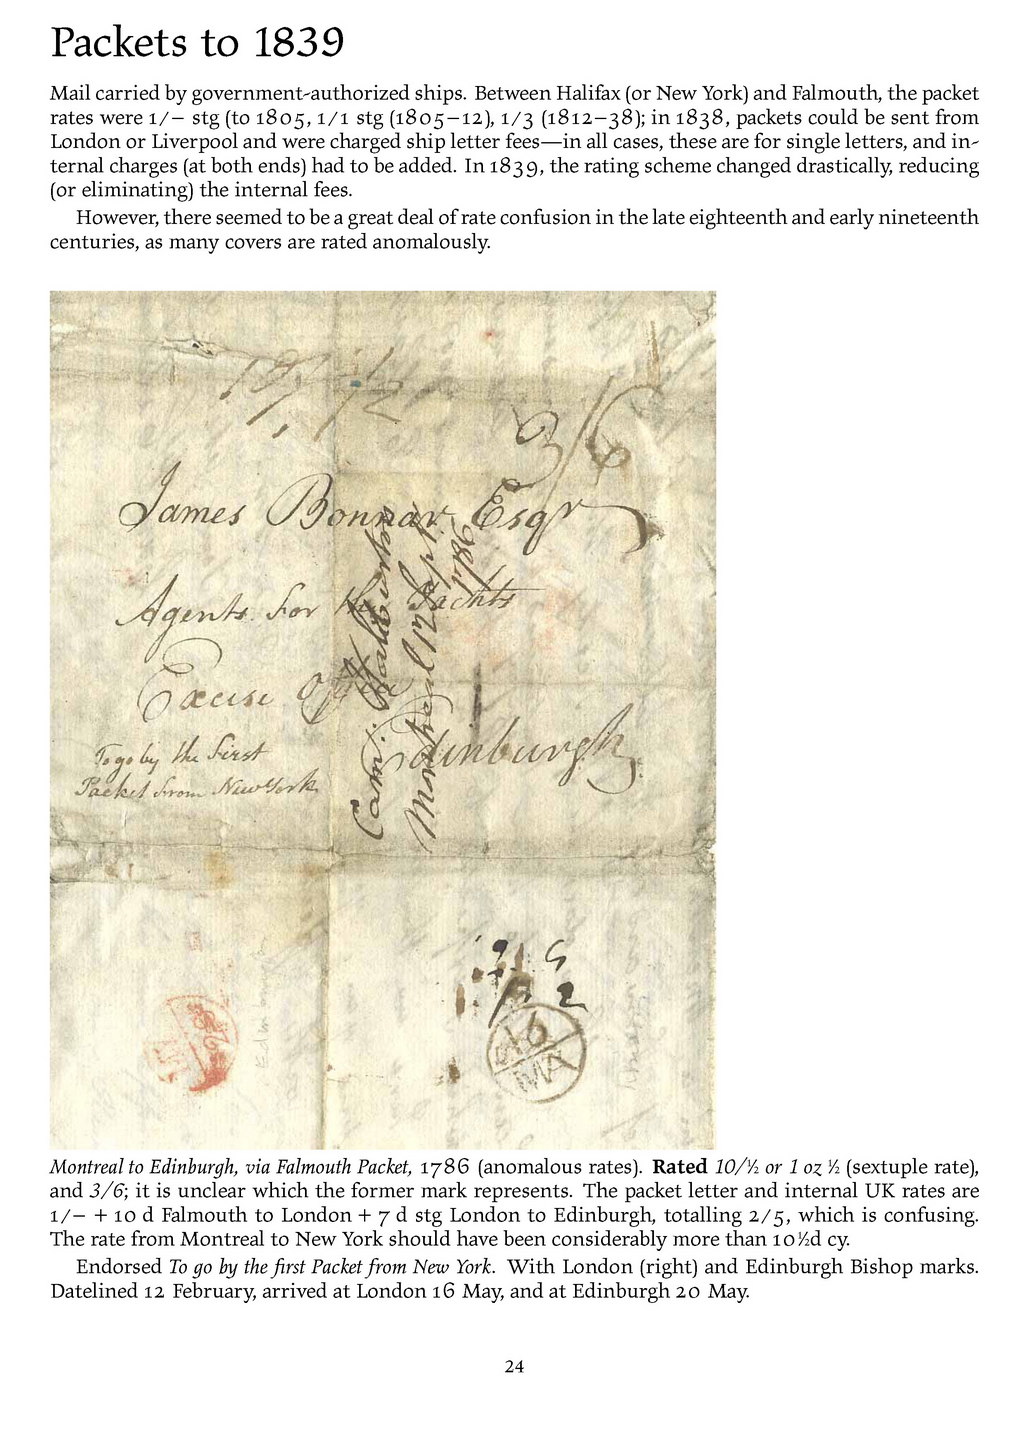 Packets to 1839
Mail carried by government-authorized ships. Between Halifax (or New York) and Falmouth, the packet
rates were 1/– stg (to 1805, 1/1 stg (1805–12), 1/3 (1812–38); in 1838, packets could be sent from
London or Liverpool and were charged ship letter fees—in all cases, these are for single letters, and in-
ternal charges (at both ends) had to be added. In 1839, the rating scheme changed drastically, reducing
(or eliminating) the internal fees.
However, there seemed to be a great deal of rate confusion in the late eighteenth and early nineteenth
centuries, as many covers are rated anomalously.
3/6
James Bonnar Esqr
Agents for the Yachts
Excise Office
Edinburgh
To go by the First
Packet from New York
Cam:
Montreal 12
1786
16
MA
Montreal to Edinburgh, via Falmouth Packet, 1786 (anomalous rates). Rated 10/½ or 1 oz ½ (sextuple rate),
and 3/6; it is unclear which the former mark represents. The packet letter and internal UK rates are
1/– + 10 d Falmouth to London + 7 d stg London to Edinburgh, totalling 2/5, which is confusing.
The rate from Montreal to New York should have been considerably more than 10½d cy.
Endorsed To go by the first Packet from New York. With London (right) and Edinburgh Bishop marks.
Datelined 12 February, arrived at London 16 May, and at Edinburgh 20 May.
24